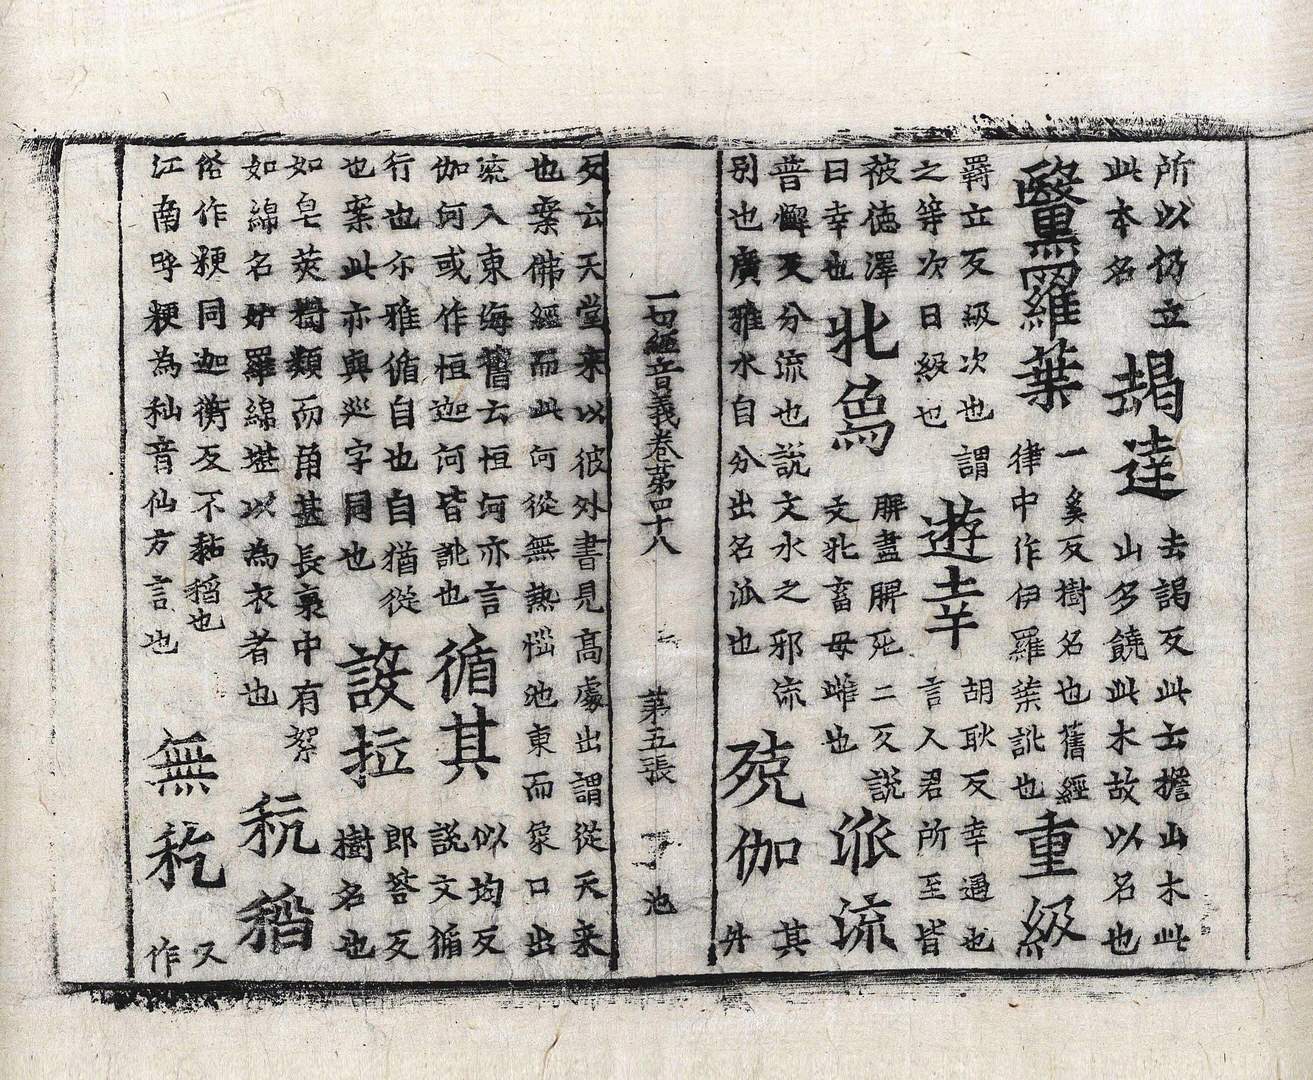 所以仍立
此本名
朅達
去謁反此云擔山木此
山多饒此木故以名也
瞖羅葉
一奚反樹名也舊經
律中作伊羅葉訛也
重級
羇立反級次也謂
之等次曰級也
遊幸
胡耿反幸遇也
言人君所至皆
被德澤
曰幸也
牝烏
脾盡脾死二反説
文牝畜母雌也
派流
普懈反分流也説文水之邪流
別也廣雅水自分出名派也
殑伽
其
外
一切經音義卷第四十八 第五張 池
反云天堂來以彼外書見高處出謂從天來
也案佛經而此河從無熱惱池東面象口出
流入東海舊云恒河亦言
伽河或作恒迦河皆訛也
循其
似均反
説文循
行也尒雅循自也自猶從
也案此亦與巡字同也
設拉
郎荅反
樹名也
如皂莢樹類而角甚長裹中有絮
如綿名妒羅綿堪以為衣者也
秔稻
俗作粳同迦衡反不黏稻也
江南呼粳為秈音仙方言也
無秔
又
作